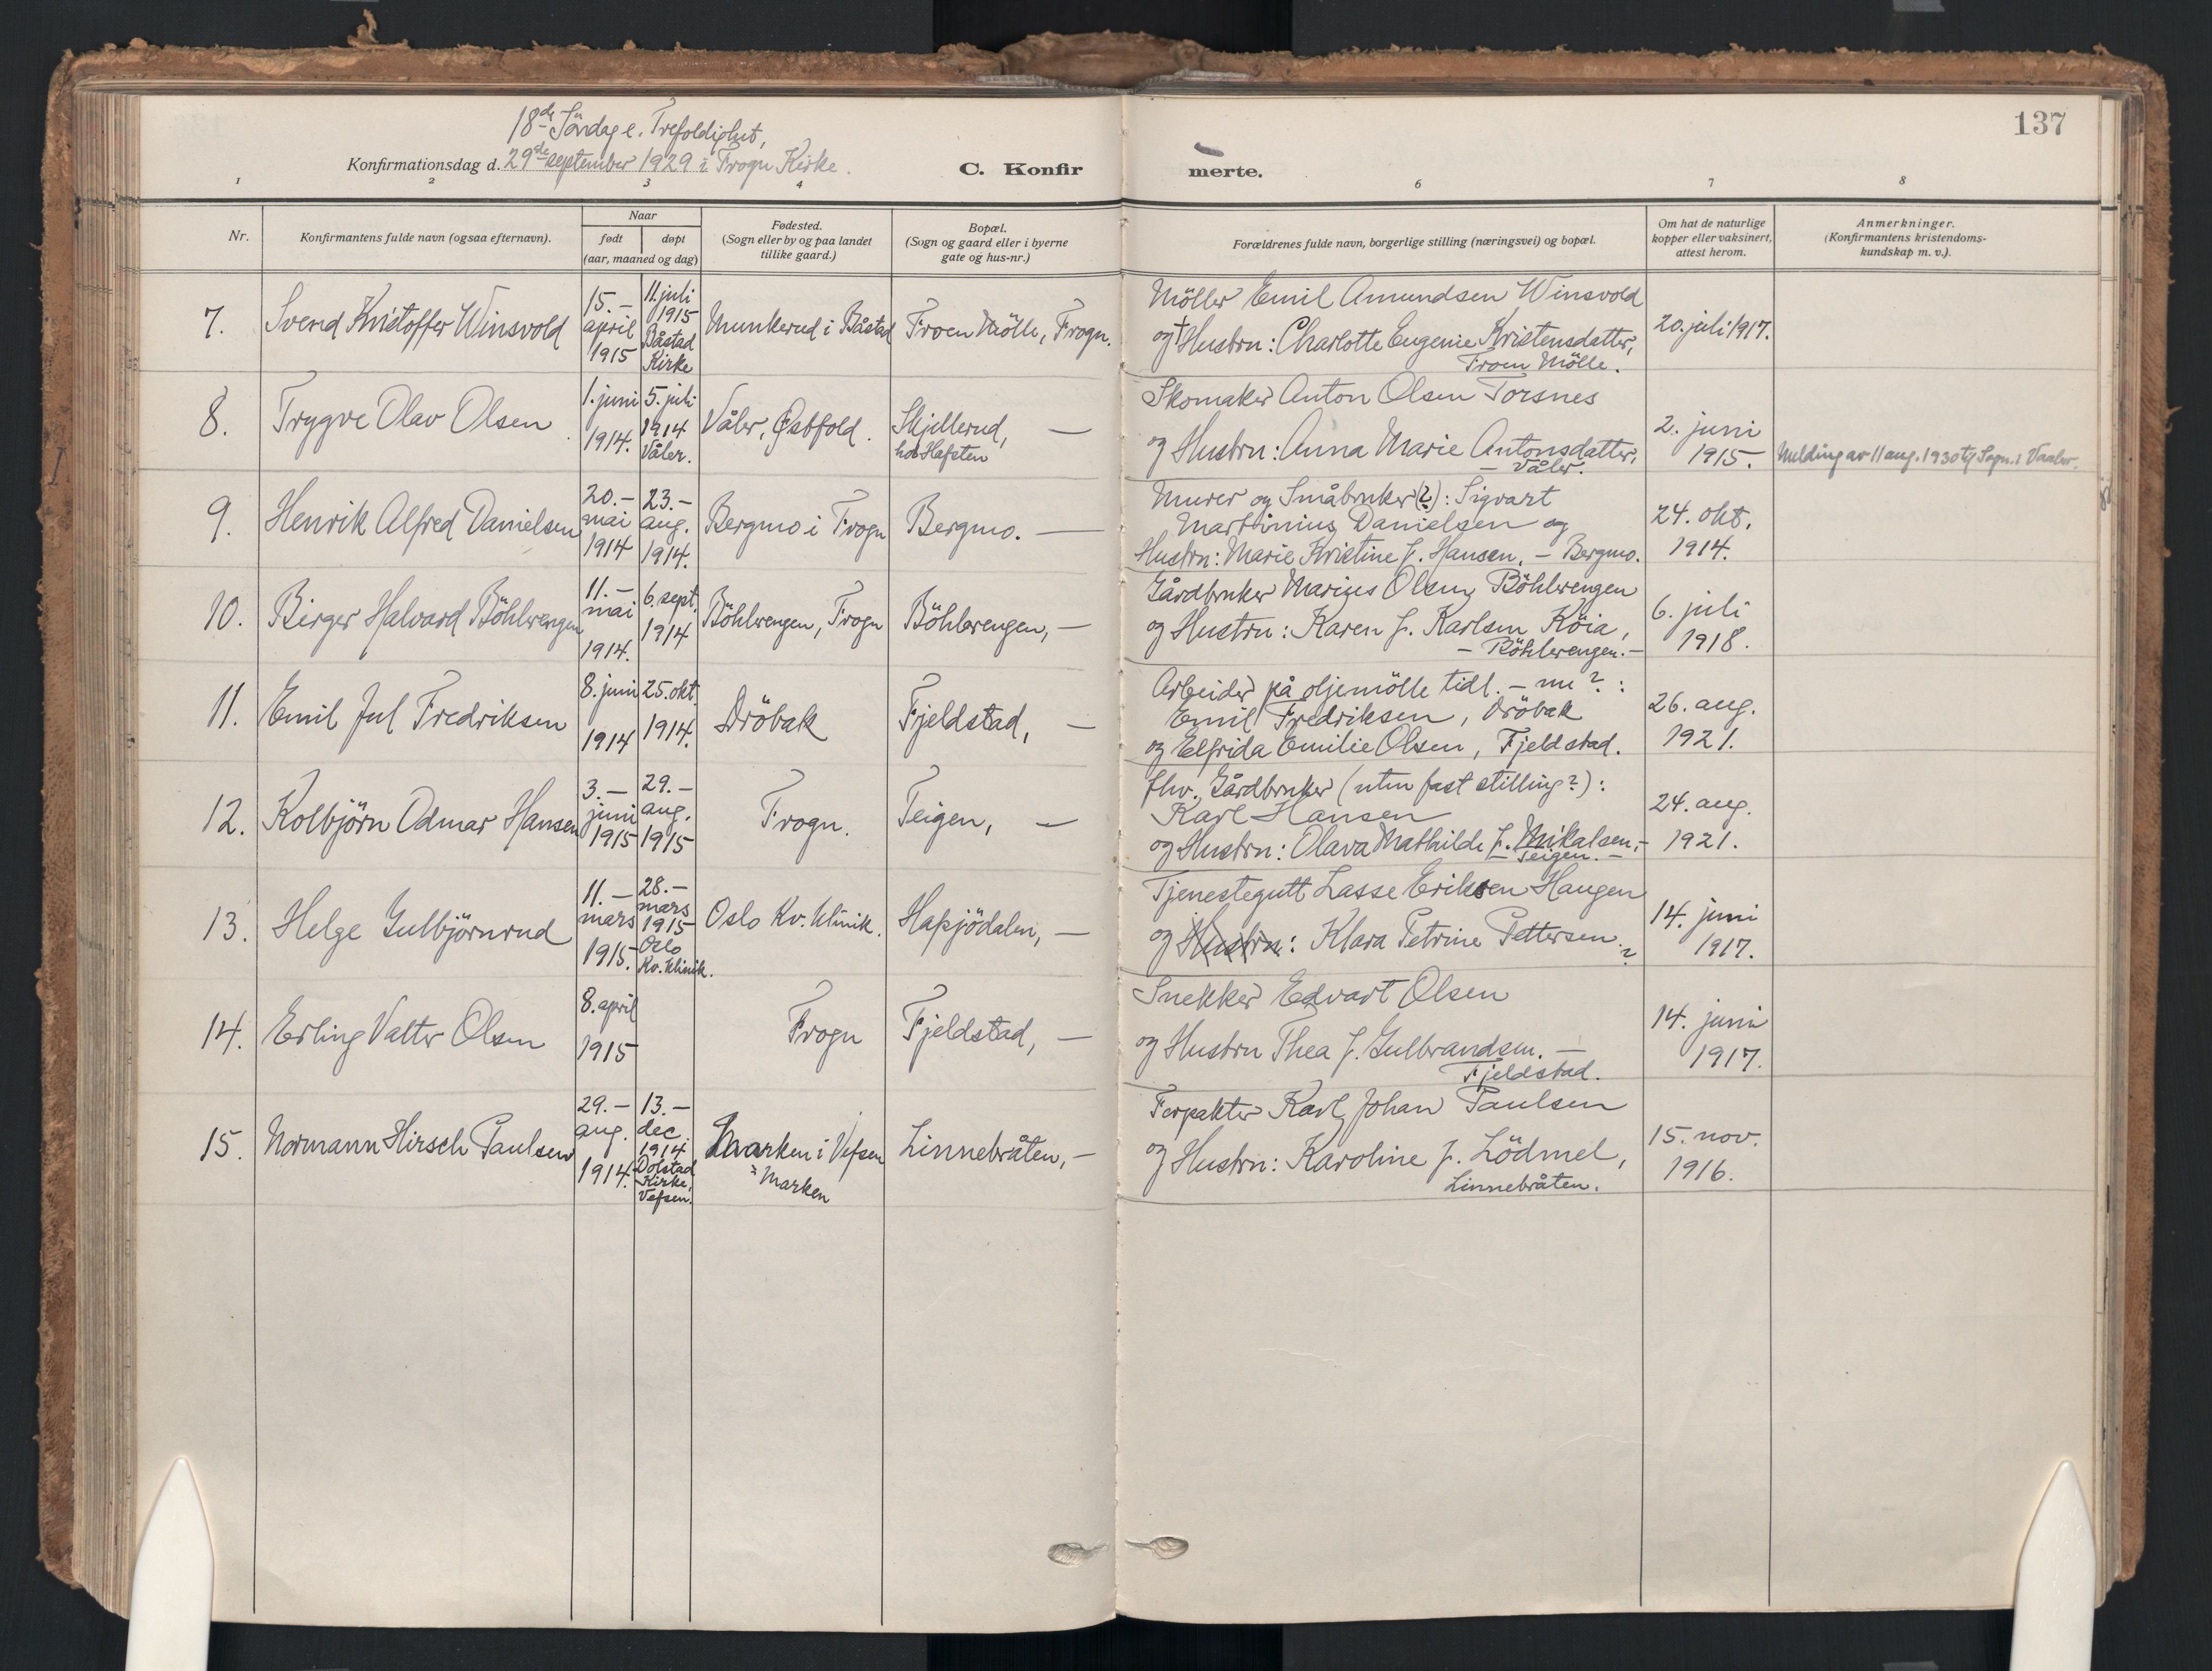 137
18de Söndag e. Trefoldighet,
Konfirmationsdag d. 29de september 1929 i Frogn Kirke.
C. Konfir
merte.
1 2 3 4 6 7 8
Nr.
Konfirmantens fulde navn (ogsaa efternavn).
Naar
født
døpt
(aar, maaned og dag)
Fødested.
(Sogn eller by og paa landet
tillike gaard.)
Bopæl.
(Sogn og gaard eller i byerne
gate og hus-nr.)
Forældrenes fulde navn, borgerlige stilling (næringsvei) og bopæl.
Om hat de naturlige
kopper eller vaksinert,
attest herom.
Anmerkninger.
(Konfirmantens kristendoms-
kundskap m. v.).
7.
Svend Kristoffer Winsvold
15.-
april
1915
11. juli
1915
Båstad
Kirke
Munkerud i Båstad
Froen Mölle, Frogn.
Möller Emil Amundsen Winsvold
og † Hustru: Charlotte Eugenie Kristensdatter,
Froen Mölle.
20. juli 1917.
8.
Trygve Olav Olsen
1. juni
1914.
5. juli
1914
Våler.
Våler, Østfold.
Skjellerud, —
hos Hafsten
Skomaker Anton Olsen Torsnes
og Hustru: Anna Marie Antonsdatter,
- Våler.
2. juni
1915.
Melding av 11 aug. 1930 til Sogn. i Vaaler.
9.
Henrik Alfred Danielsen
20.-
mai
1914
23.-
aug.
1914.
Bergmo i Frogn
Bergmo. —
Murer og Småbruker (?): Sigvart
Marthinius Danielsen og
Hustru: Marie Kristine f. Hansen. - Bergmo.
24. okt.
1914.
10.
Birger Halvard Böhlerengen
11.-
mai
1914.
6. sept.
1914
Böhlerengen, Frogn
Böhlerengen, —
Gårdbruker Marius Olsen Böhlerengen
og Hustru: Karen f. Karlsen Köia,
- Böhlerengen. -
6. juli
1918.
11.
Emil Jul Fredriksen
8. juni
1914
25. okt.
1914.
Dröbak
Fjeldstad, —
Arbeider på oljemölle tidl. - nu?:
Emil Fredriksen, Dröbak
og Elfrida Emilie Olsen, Fjeldstad.
26. aug.
1921.
12.
Kolbjörn Odmar Hansen
3.-
juni
1915
29.-
aug.
1915
Frogn.
Teigen, —
fhv. Gårdbruker (uten fast stilling?):
Karl Hansen
og Hustru: Olava Mathilde f. Mikalsen, -
- Teigen. -
24. aug.
1921.
13.
Helge Gulbjörnrud
11.-
mars
1915.
28.-
mars
1915
Oslo
Kv. klinik.
Oslo Kv. klinik.
Hasjödalen, —
Tjenestegutt Lasse Eriksen Haugen
og Hustru: Klara Petrine Pettersen. ?
14. juni
1917.
14.
Erling Valter Olsen
8. april
1915
Frogn
Fjeldstad, —
Snekker Edvart Olsen
og Hustru Thea f. Gulbrandsen. —
Fjeldstad.
14. juni
1917.
15.
Normann Hirsch Paulsen
29.-
aug.
1914.
13.-
dec.
1914
Dolstad
Kirke,
Vefsen.
Marken i Vefsen
= Marken
Linnebråten, -
Forpakter Karl Johan Paulsen
og Hustru: Karoline f. Lödmel,
Linnebråten.
15. nov.
1916.